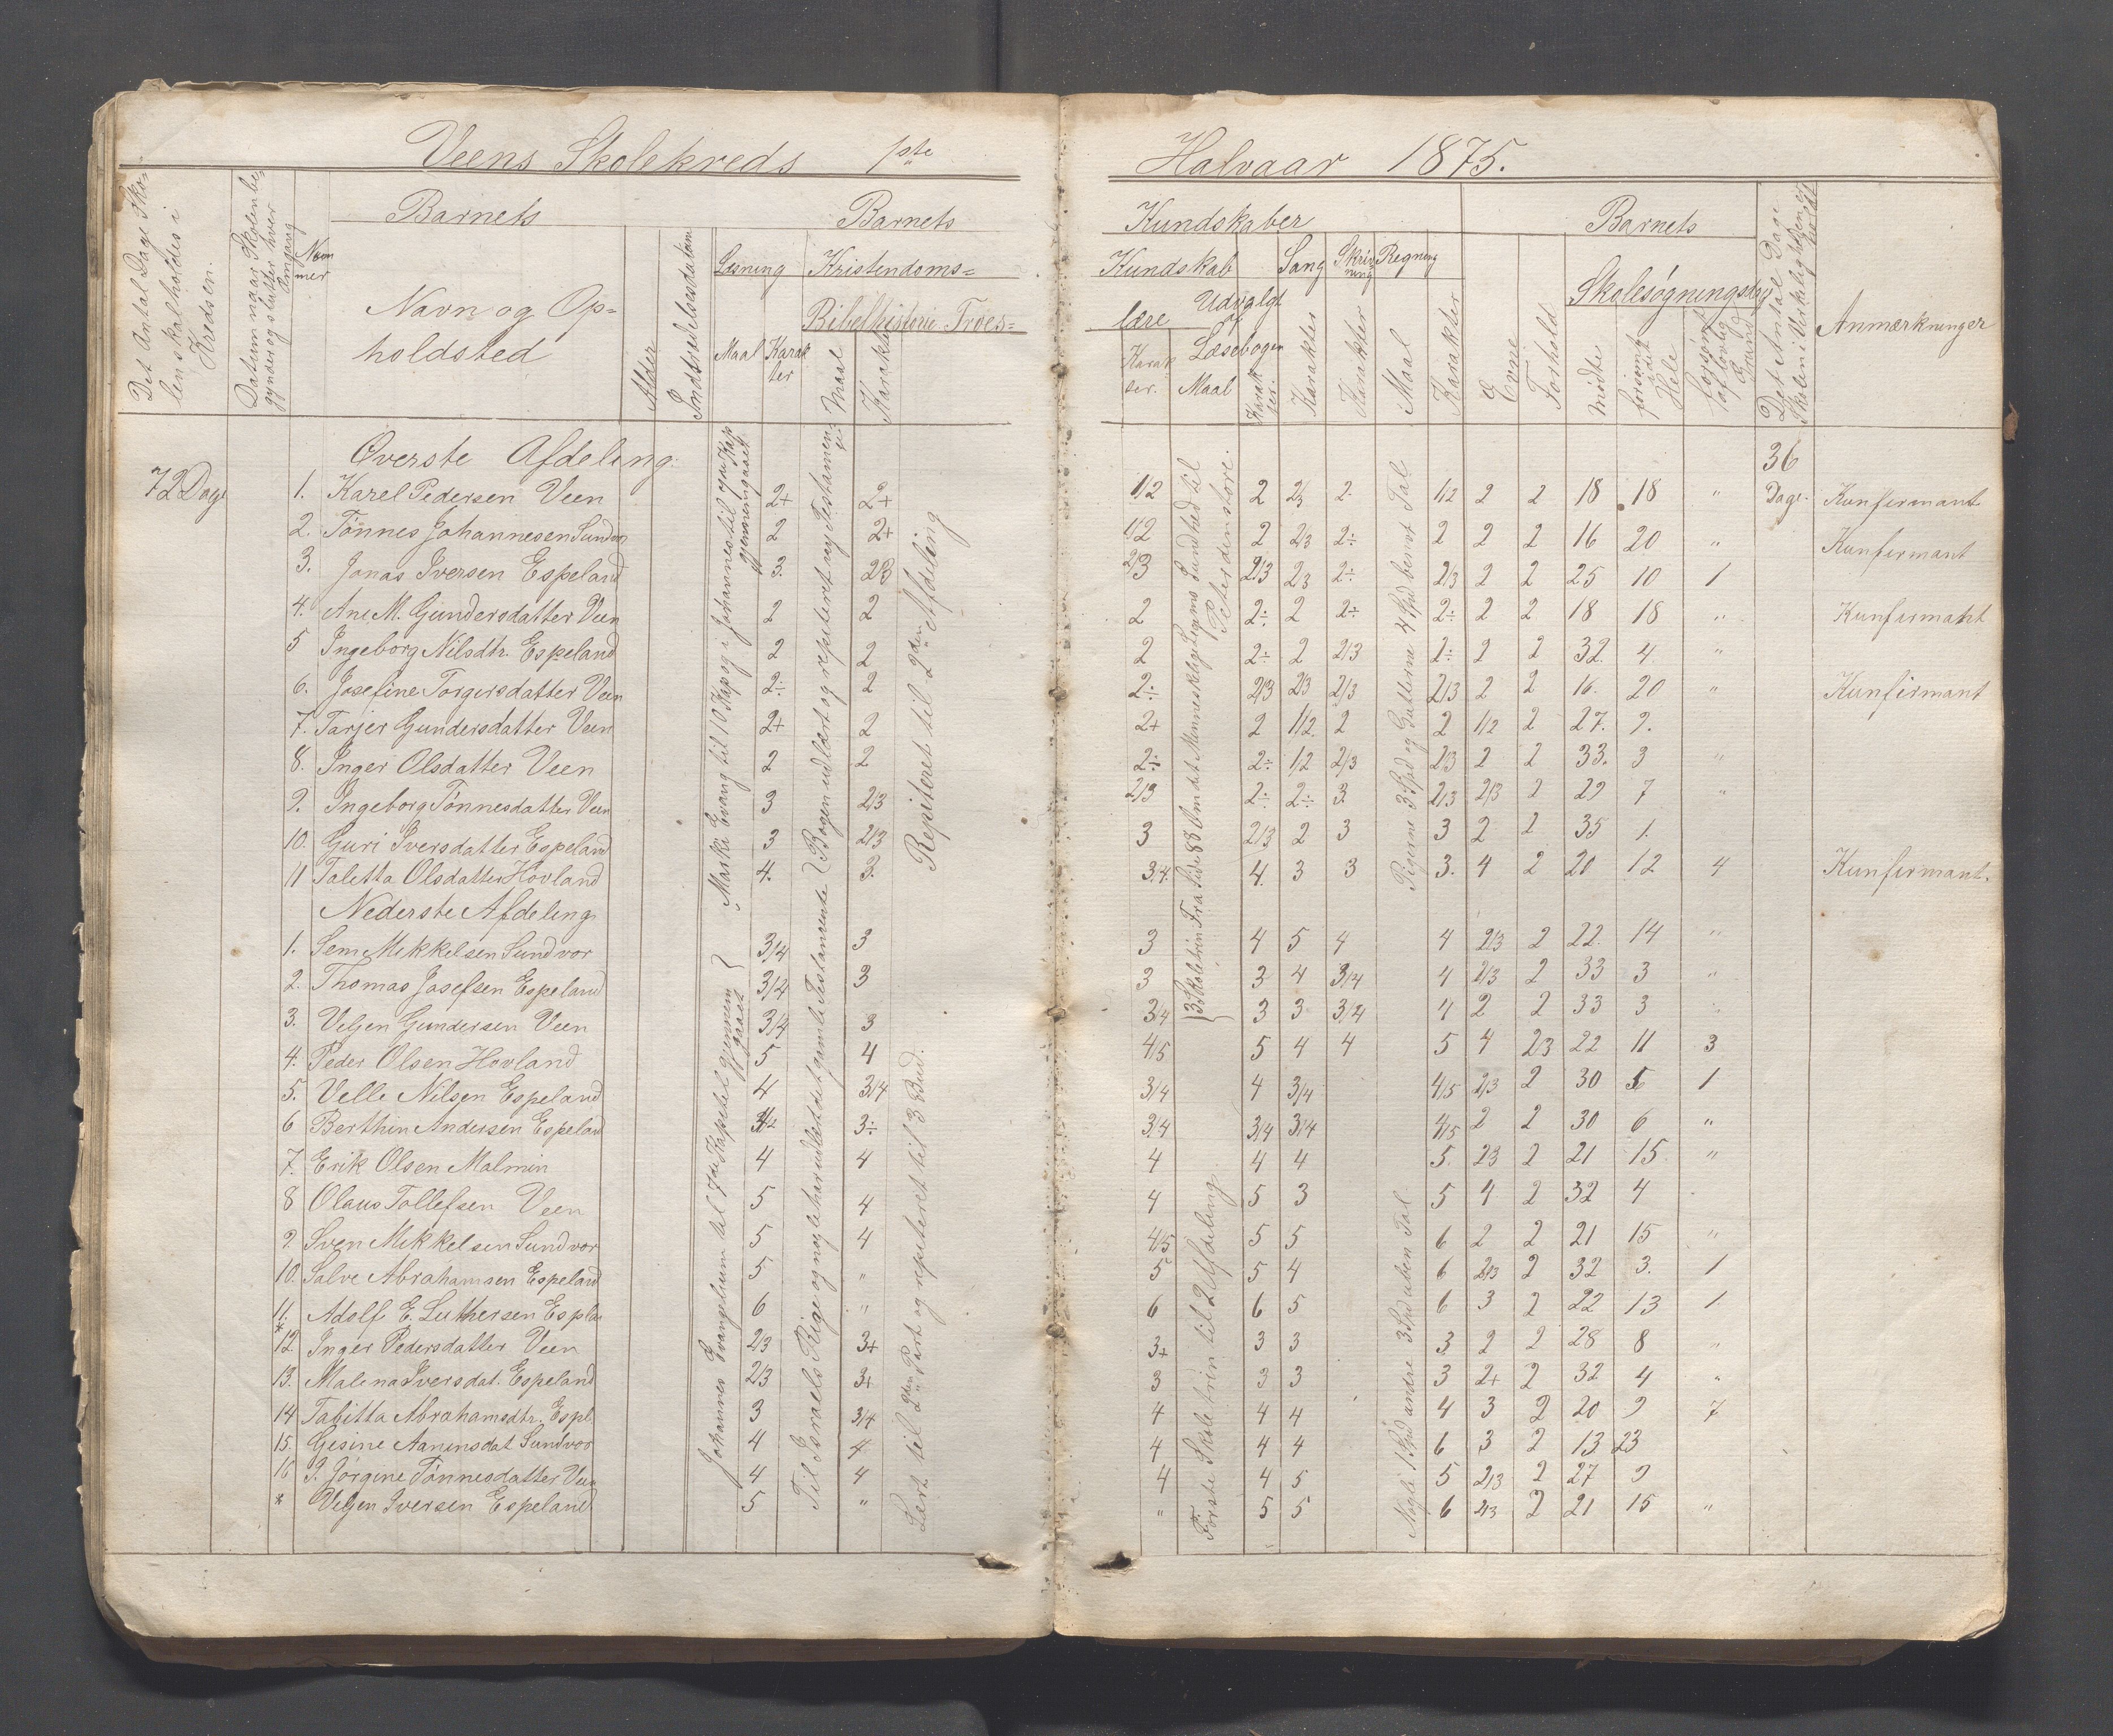 Veens Skolekreds 1ste Halvaar 1875.
Det Antal Dage Skolen skal holdes i Kredsen.
Datum naar Skolen begynder og slutter hver Omgang
Nummer
Barnets
Navn og Opholdsted
Alder
Indtrædelsesdatum
Barnets Kundskaber
Læsning
Maal Karakter
Kristendoms= Kundskab
Bibelhistorie Troes= lære
Maal Karakter
Karakter.
Udvalgt af Læsebogen
Maal Karakter.
Sang
Karakter
Skrivning
Karakter
Regning
Maal Karakter
Barnets
Evne
Forhold
Skolesøgningsdage
mødte
forsømt i det Hele
forsømt af lovlig Grund
Det Antal Dage Skolen i Virkeligheden er holdt
Anmærkninger
Øverste Afdeling.
72 Dage
36 Dage.
1. Karel Pedersen Veen 2+ 2+ 1/2 2 2/3 2. 1/2 2 2 18 18 " Konfirmant
2. Tönnes Johannesen Sundvor 2 2+ 1/2 2 2/3 2÷ 2 2 2 16 20 " Konfirmant
3. Jonas Iversen Espeland 3. 2/3 2/3 2/3 2/3 2÷ 2/3 2 2 25 10 1
4. Ane M. Gundersdatter Veen 2 2 2 2÷ 2 2÷ 2÷ 2 2 18 18 " Konfirmant
5 Ingeborg Nilsdtr. Espeland 2 2 2 2÷ 2 2/3 2÷ 2 2 32. 4 "
6. Josefine Torgersdatter Veen 2÷ 2 2÷ 2/3 2/3 2/3 2/3 2 2 16. 20 " Konfirmant
7. Tarjer Gundersdatter Veen 2+ 2 2+ 2 1/2 2 2 1/2 2 27. 9.
8. Inger Olsdatter Veen 2 2 2÷ 2÷ 1/2 2/3 2/3 2 2 33. 3 "
9. Ingeborg Tönnesdatter Veen 3 2/3 2/3 2÷ 2÷ 3. 2/3 2/3 2 29 7 "
10. Guri Iversdatter Espeland 3 2/3 3 2/3 2 3 3 2 2 35 1.
11 Taletta Olsdatter Hovland 4. 3. 3.4. 4. 3 3 3. 4 2 20 12 4 Konfirmant.
Marki Evang til 10 Kap og i Johannes til 9de Kap gjennemgaaet
Bogen udlært og repeteret nye Testamente
Repiteret til 2den Afdeling
3 Skoletrin Fra Side 88 Om det Menneskelige Legems Sundhed til Peter den store.
Pigerne 3 Spd og Gutterne 4 Spd benævt Tal
Nederste Afdeling
1. Sem Mikkelsen Sundvor 3/4 3 3 4 5 4 4 2/3 2 22. 14 "
2. Thomas Josefsen Espeland 3/4 3 3 3 4 3/4 4 2/3 2 33 3 "
3. Veljen Gundersen Veen 3/4 3 3/4 3 3 3/4 4 2 2 33 3 "
4. Peder Olsen Hovland 5 4 4/5 5 4 4 5 4 2/3 22 11 3
5. Velle Nilsen Espeland 4 3/4 3/4 4 3/4 4/5 2/3 2 30 5 1
6 Berthin Andersen Espeland 3÷ 3/4 3/4 3/4 4/5 2 2 30 6 "
7. Erik Olsen Malmin 4 4 4 4 4 5. 2/3 2 21 15 "
8 Olaus Tollefsen Veen 5 4 4 5 3 5 4 2 32 4
9. Sven Mikkelsen Sundvor 5 4 4/5 5 5 6 2 2 21 15 "
10. Salve Abrahamsen Espeland 5 " 5 5 4 6 2/3 2 32 3. 1
11. Adolf E. Luthersen Espla 6 " 6 6 5 6 3 2 22 13 1
12. Inger Pedersdatter Veen 2/3 3+ 3+ 3 3 3. 2 2 28 8 "
13. Malena Iversdat. Espeland 2/3 3+ 3 3 3 3 2+ 2 32 4 "
14 Tabitta Abrahamsdtr. Espl. 3 3/4 4 4 4 4 3 2 20 9 7
15. Gesine Aanensdat Sundvor 4 4 4 4 4 6 3 2 13 23
16 P. Jörgine Tönnesdatter Veen 4 4 4 4 5 5 2/3 2 27 9
* Veljen Iversen Espeland 5 " " 5 5 6 2/3 2 21 15 "
Johannes Evangelium til 7de Kapitel gjennemgaaet
Til Israels Rige og nogle har udlært det gamle Testamente
Lært til 2den Part og repiteret til 3 Bud.
Første Skoletrin til 2 Afdeling.
Nogle 1 Spd andre 3 Spd uben Tal